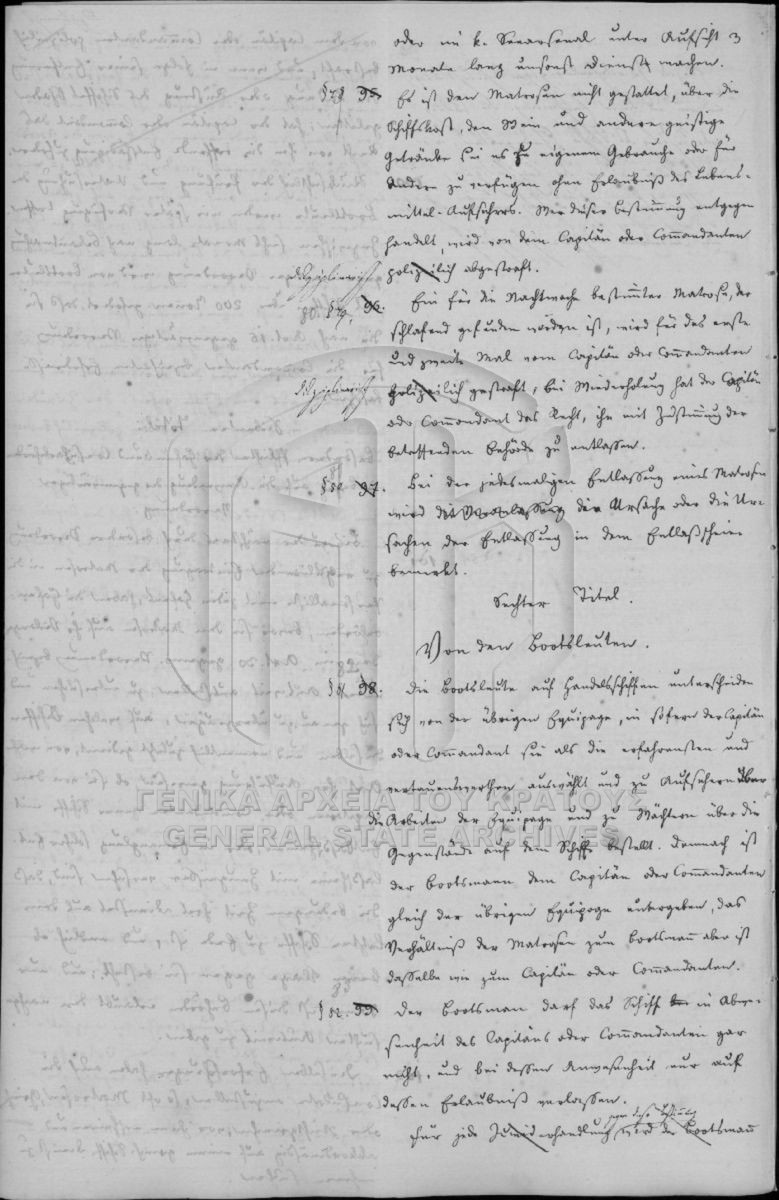 oder im k. Seearsenal unter Aufsicht 3
Monate lang umsonst Dienste machen.
§78 95. Es ist den Matrosen nicht gestattet, über die
Schiffskost, den Wein und andere geistige
Getränke sei es zu eigenem Gebrauche oder für
Andere zu verfügen ohne Erlaubniß des Lebens-
mittel-Aufsehers. Wer dieser Bestimmung entgegen
handelt, wird von dem Capitän oder Commandanten
disziplinarisch polizeilich abgestraft.
§79. 96. Ein für die Nachtwache bestimmter Matrose, der
schlafend gefunden worden ist, wird für das erste
und zweite Mal vom Capitän oder Commandanten
disziplinarisch polizeilich gestraft; bei Wiederholung hat der Capitän
oder Commandant das Recht, ihn mit Zustimmung der
betreffenden Behörde zu entlassen.
97. Bei der jedesmaligen Entlassung eines Matrosen
wird die Veranlassung die Ursache oder die Ur-
sachen der Entlassung in dem Entlaßscheine
bemerkt.
Sechster Titel.
Von den Bootsleuten.
§81 98. Die Bootsleute auf Handelsschiffen unterscheiden
sich von der übrigen Equipage, in sofern der Capitän
oder Commandant sie als die erfahrensten und
vertrauenswerthen auswählt und zu Aufsehern über
die Arbeiten der Equipage und zu Wächtern über die
Gegenstände auf dem Schiffe bestellt. Demnach ist
der Bootsmann dem Capitän oder Commandanten
gleich der übrigen Equipage untergeben, das
Verhältniß der Matrosen zum Bootsmann aber ist
dasselbe wie zum Capitän oder Commandanten.
§82. 99. Der Bootsman darf das Schiff in Abwe-
senheit des Capitäns oder Commandanten gar
nicht, und bei dessen Anwesenheit nur auf
dessen Erlaubniß verlassen.
Für jede Zuwiderhandlung wird der Bootsmann
ΓΕΝΙΚΑ ΑΡΧΕΙΑ ΤΟΥ ΚΡΑΤΟΥΣ
GENERAL STATE ARCHIVES